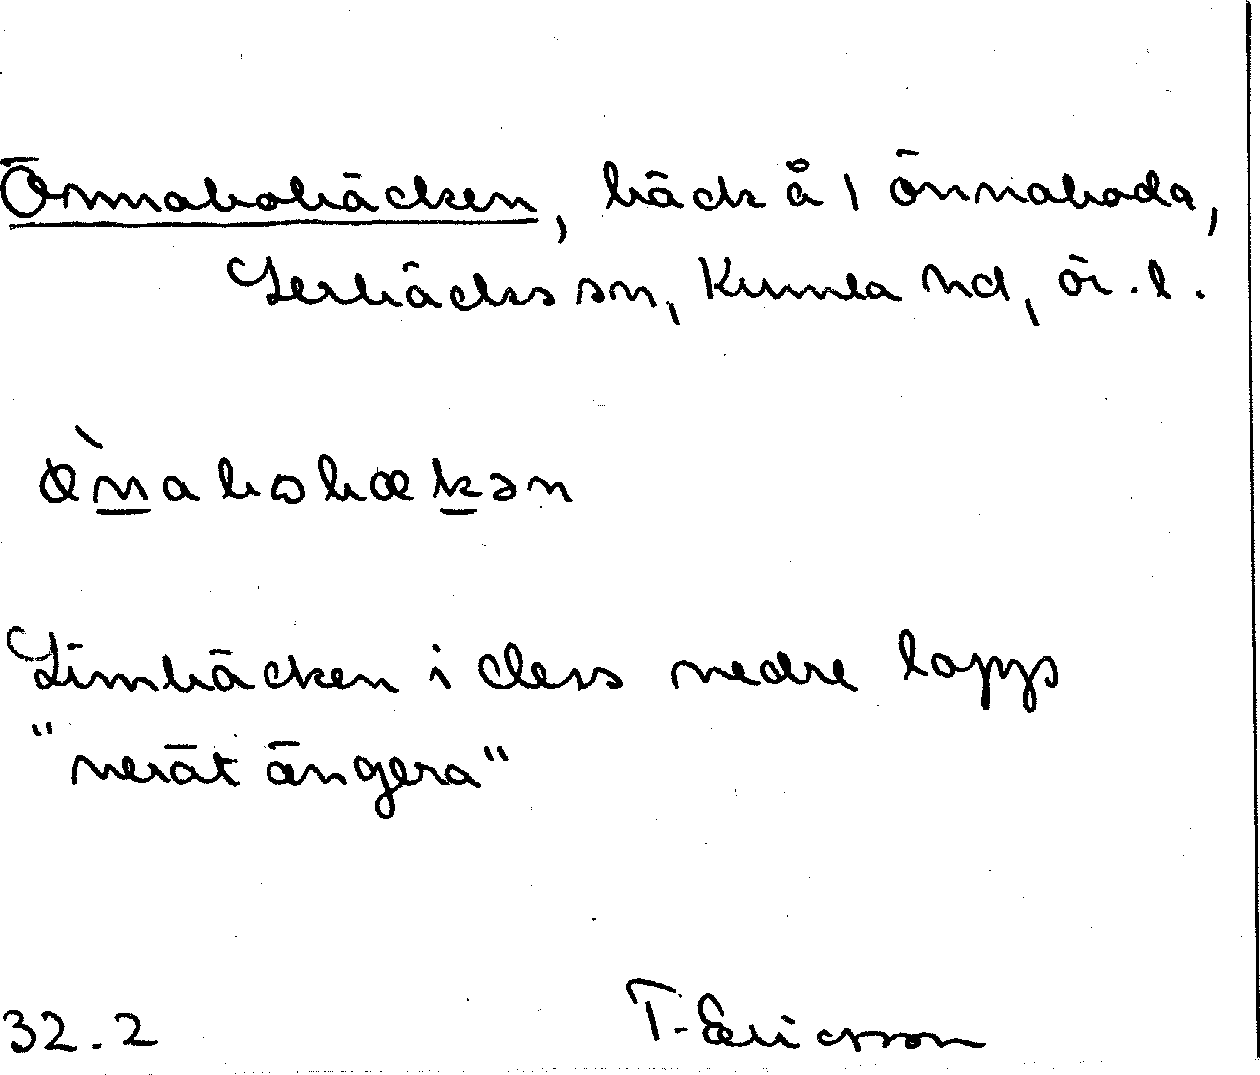 Önnabobäcken, bäck å 1 önnaboda,
Lerbäcks sn, Kumla hd, ör. l.
ö̀nabobækən
Limbäcken i dess nedre lopp
"neråt ängera"
32.2 T. Ericsson